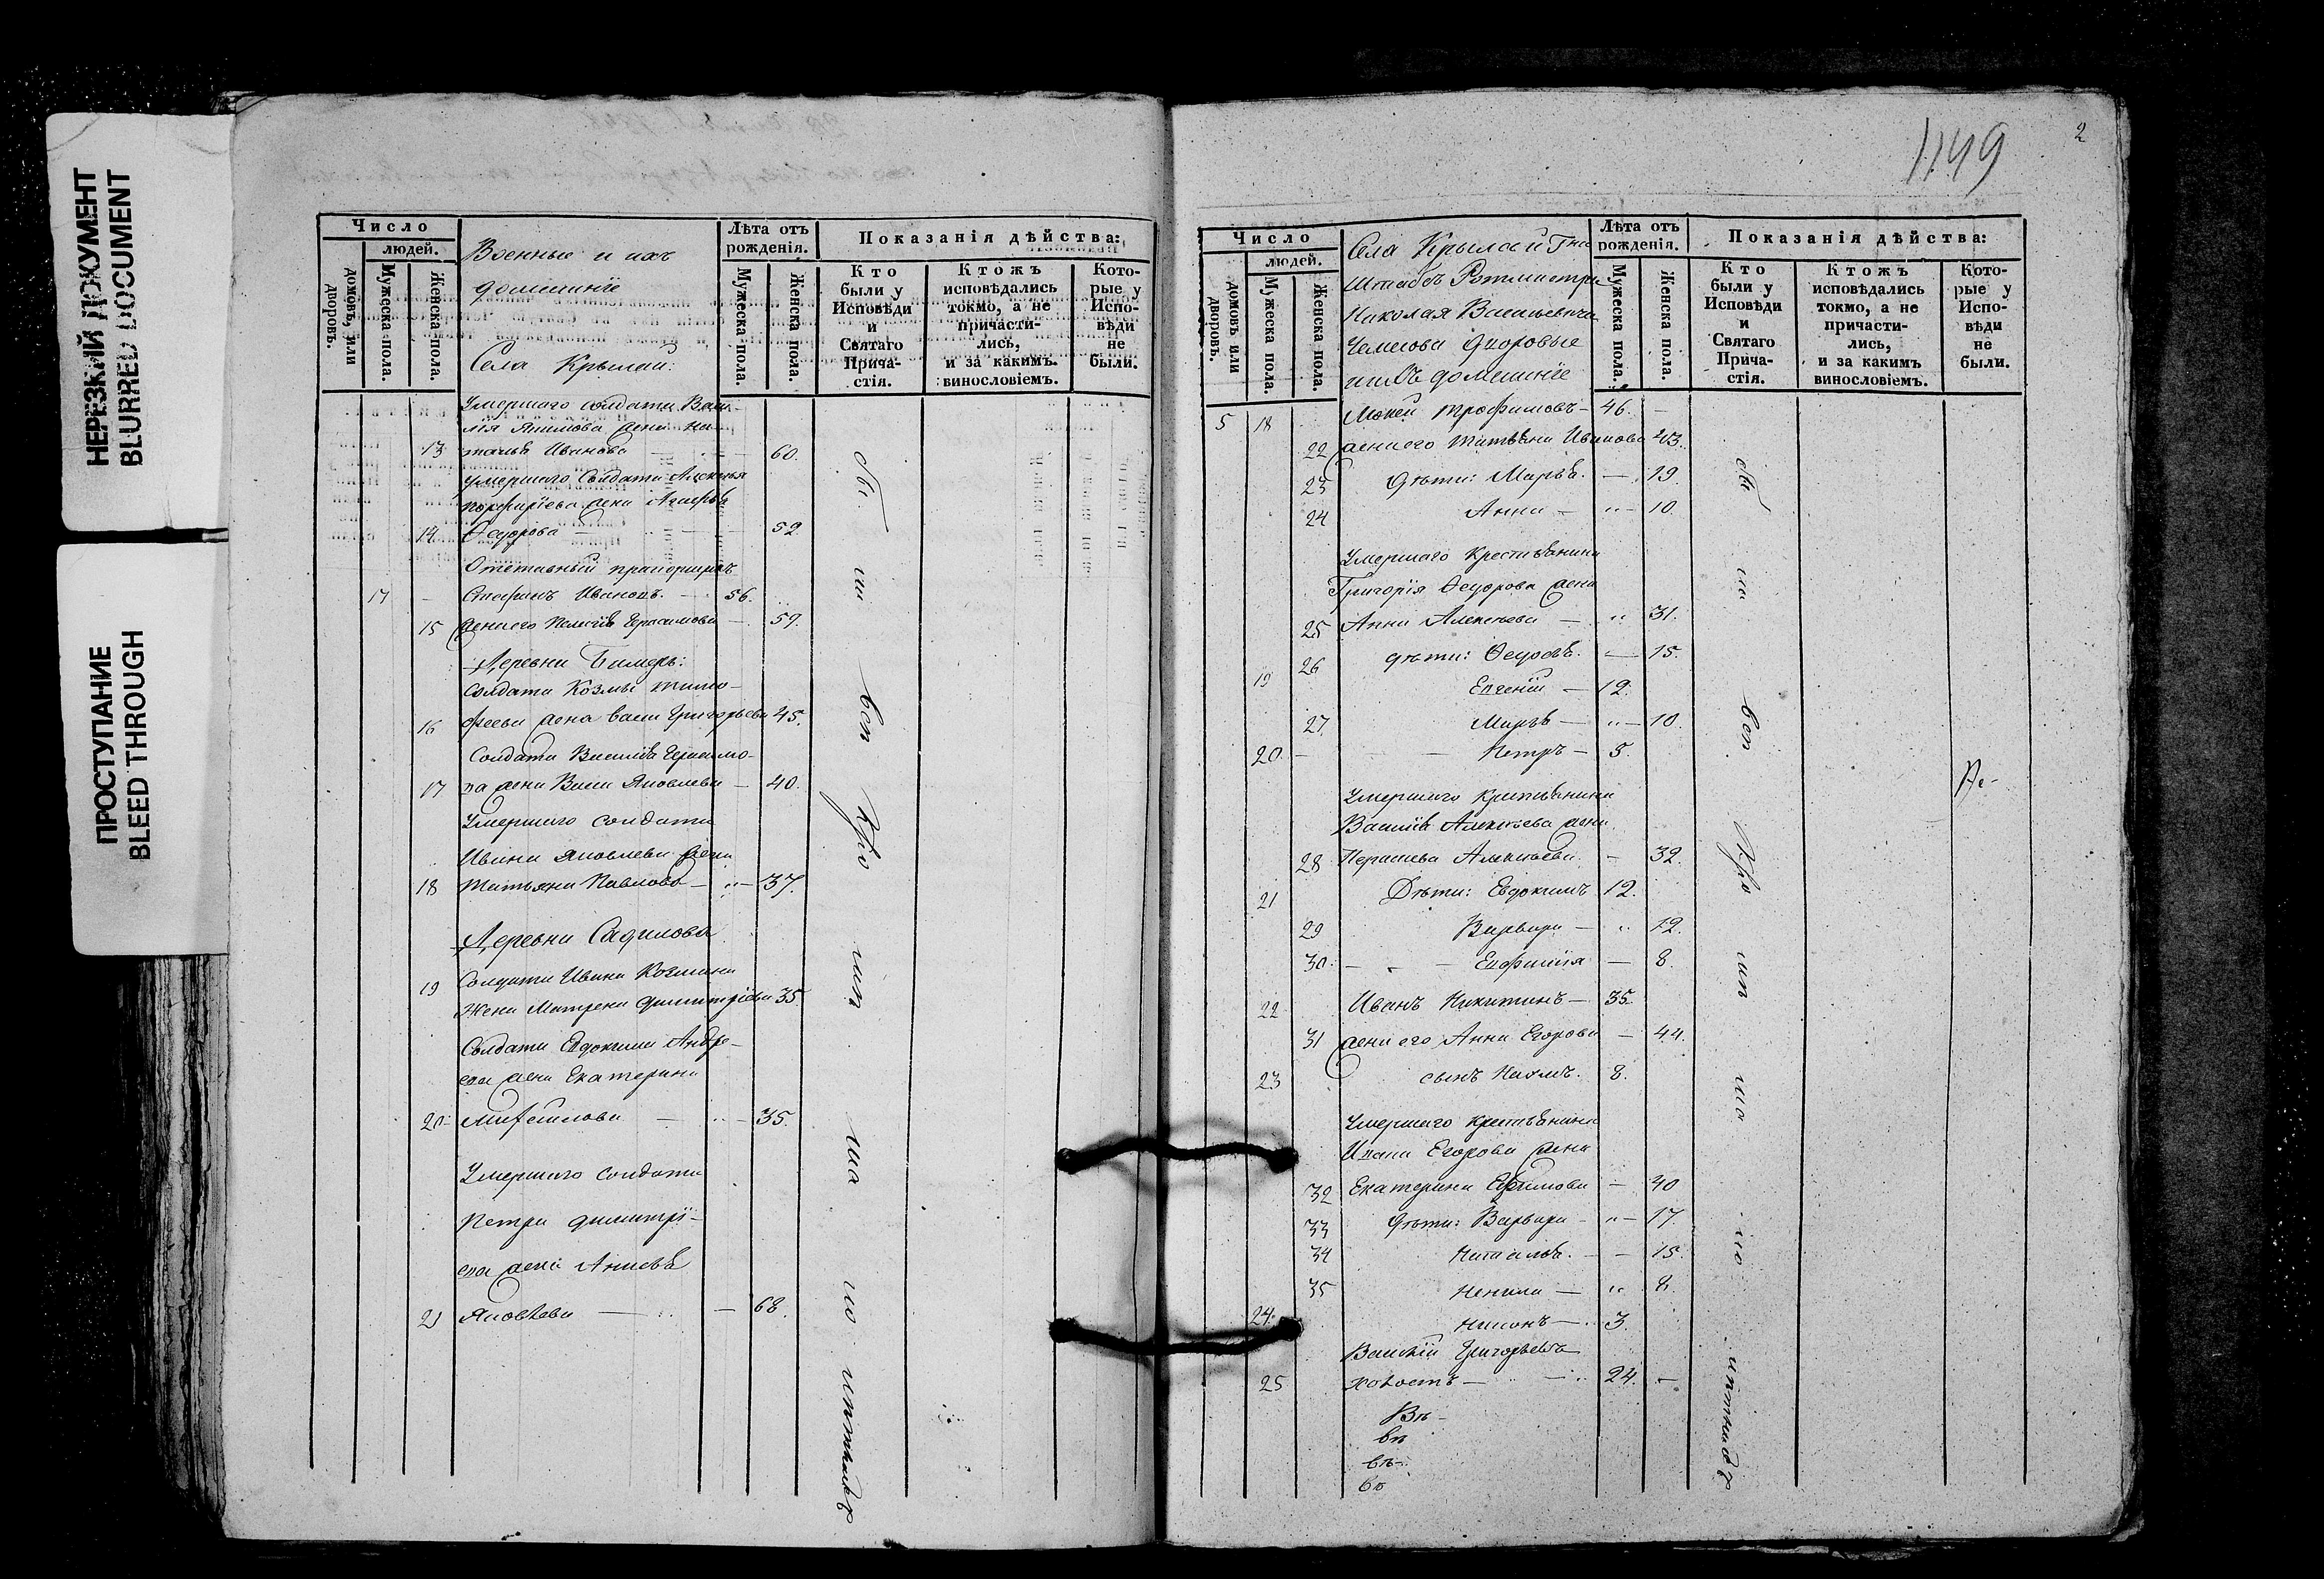 НЕРЕЗКИЙ ДОКУМЕНТ
BLURRED DOCUMENT
ПРОСТУПАНИЕ
BLEED THROUGH
Число
людей.
домовъ, или дворовъ.
Мужеска пола.
Женска пола.
Военные и ихъ
домашніе
Села Крылай:
Лѣта отъ рожденія.
Мужеска пола.
Женска пола.
Показанія дѣйства:
Кто были у Исповѣди и Святаго Причастія.
Ктожъ исповѣдались токмо, а не причастились, и за какимъ винословіемъ.
Которые у Исповѣди не были.
Умершаго солдата Васи-
лія Якимова жена На-
13 талья Иванова 60.
умершаго Солдата Алексѣя
Порфирьева жена Агафья
14 Ѳедорова 52
Отставный прапорщикъ
17 - Иванъ 56.
15 жена его Герасимова 59.
Деревни Бимеръ:
Солдата Козмы Тимо-
16 феева жена Васса Григорьева 45.
Солдата Василья Герасимо-
17 ва жена Васса Яковлева 40.
Умершаго солдата
Ивана Яковлева жена
18 Татьяна Павлова 37.
Деревни Садилова
19 Солдата Ивана Козмина
жена Матрена Димитріева 35
Солдата Евдокима Андре-
ева жена Екатерина
20 Михайлова 35.
Умершаго солдата
Петра Димитрі-
ева жена Анисья
21 Яковлева 68.
1149
2
Число
людей.
домовъ или дворовъ.
Мужеска пола.
Женска пола.
Села Крылай Гна
Штабъ Ротмистра
Николая Васильевича
дворовые
домашніе
Лѣта отъ рожденія.
Мужеска пола.
Женска пола.
Показанія дѣйства:
Кто были у Исповѣди и Святаго Причастія.
Ктожъ исповѣдались токмо, а не причастились, и за какимъ винословіемъ.
Которые у Исповѣди не были.
5 18 Мокей Трофимовъ - 46. -
22 жена его Татьяна Иванова 43.
23 Дѣти: Марья. - 19.
24 Анна - 10.
Умершаго крестьянина
Григорія Ѳедорова жена
25 Анна Алексѣева - 31.
26 дѣти: Ѳедосья. - 15.
19 Евгеній - 12.
27 Марья - 10.
20 Петръ - 5.
Умершаго крестьянина
Василья Алексѣева жена
28 Алексѣева. - 32.
21 Дѣти: Евдокимъ 12.
29 Варвара - 12.
30 Евфимія - 8.
22 Иванъ Никитинъ - 35.
31 жена его Анна Егорова - 44.
23 сынъ 8.
Умершаго крестьянина
Ивана Егорова жена
32 Екатерина Ефимова - 40
33 дѣти: Варвара - 17.
34 Наталья. - 15.
35 Ненила - 8.
24. Никонъ - 3.
Василій Григорьевъ
25 холостъ - 24. -